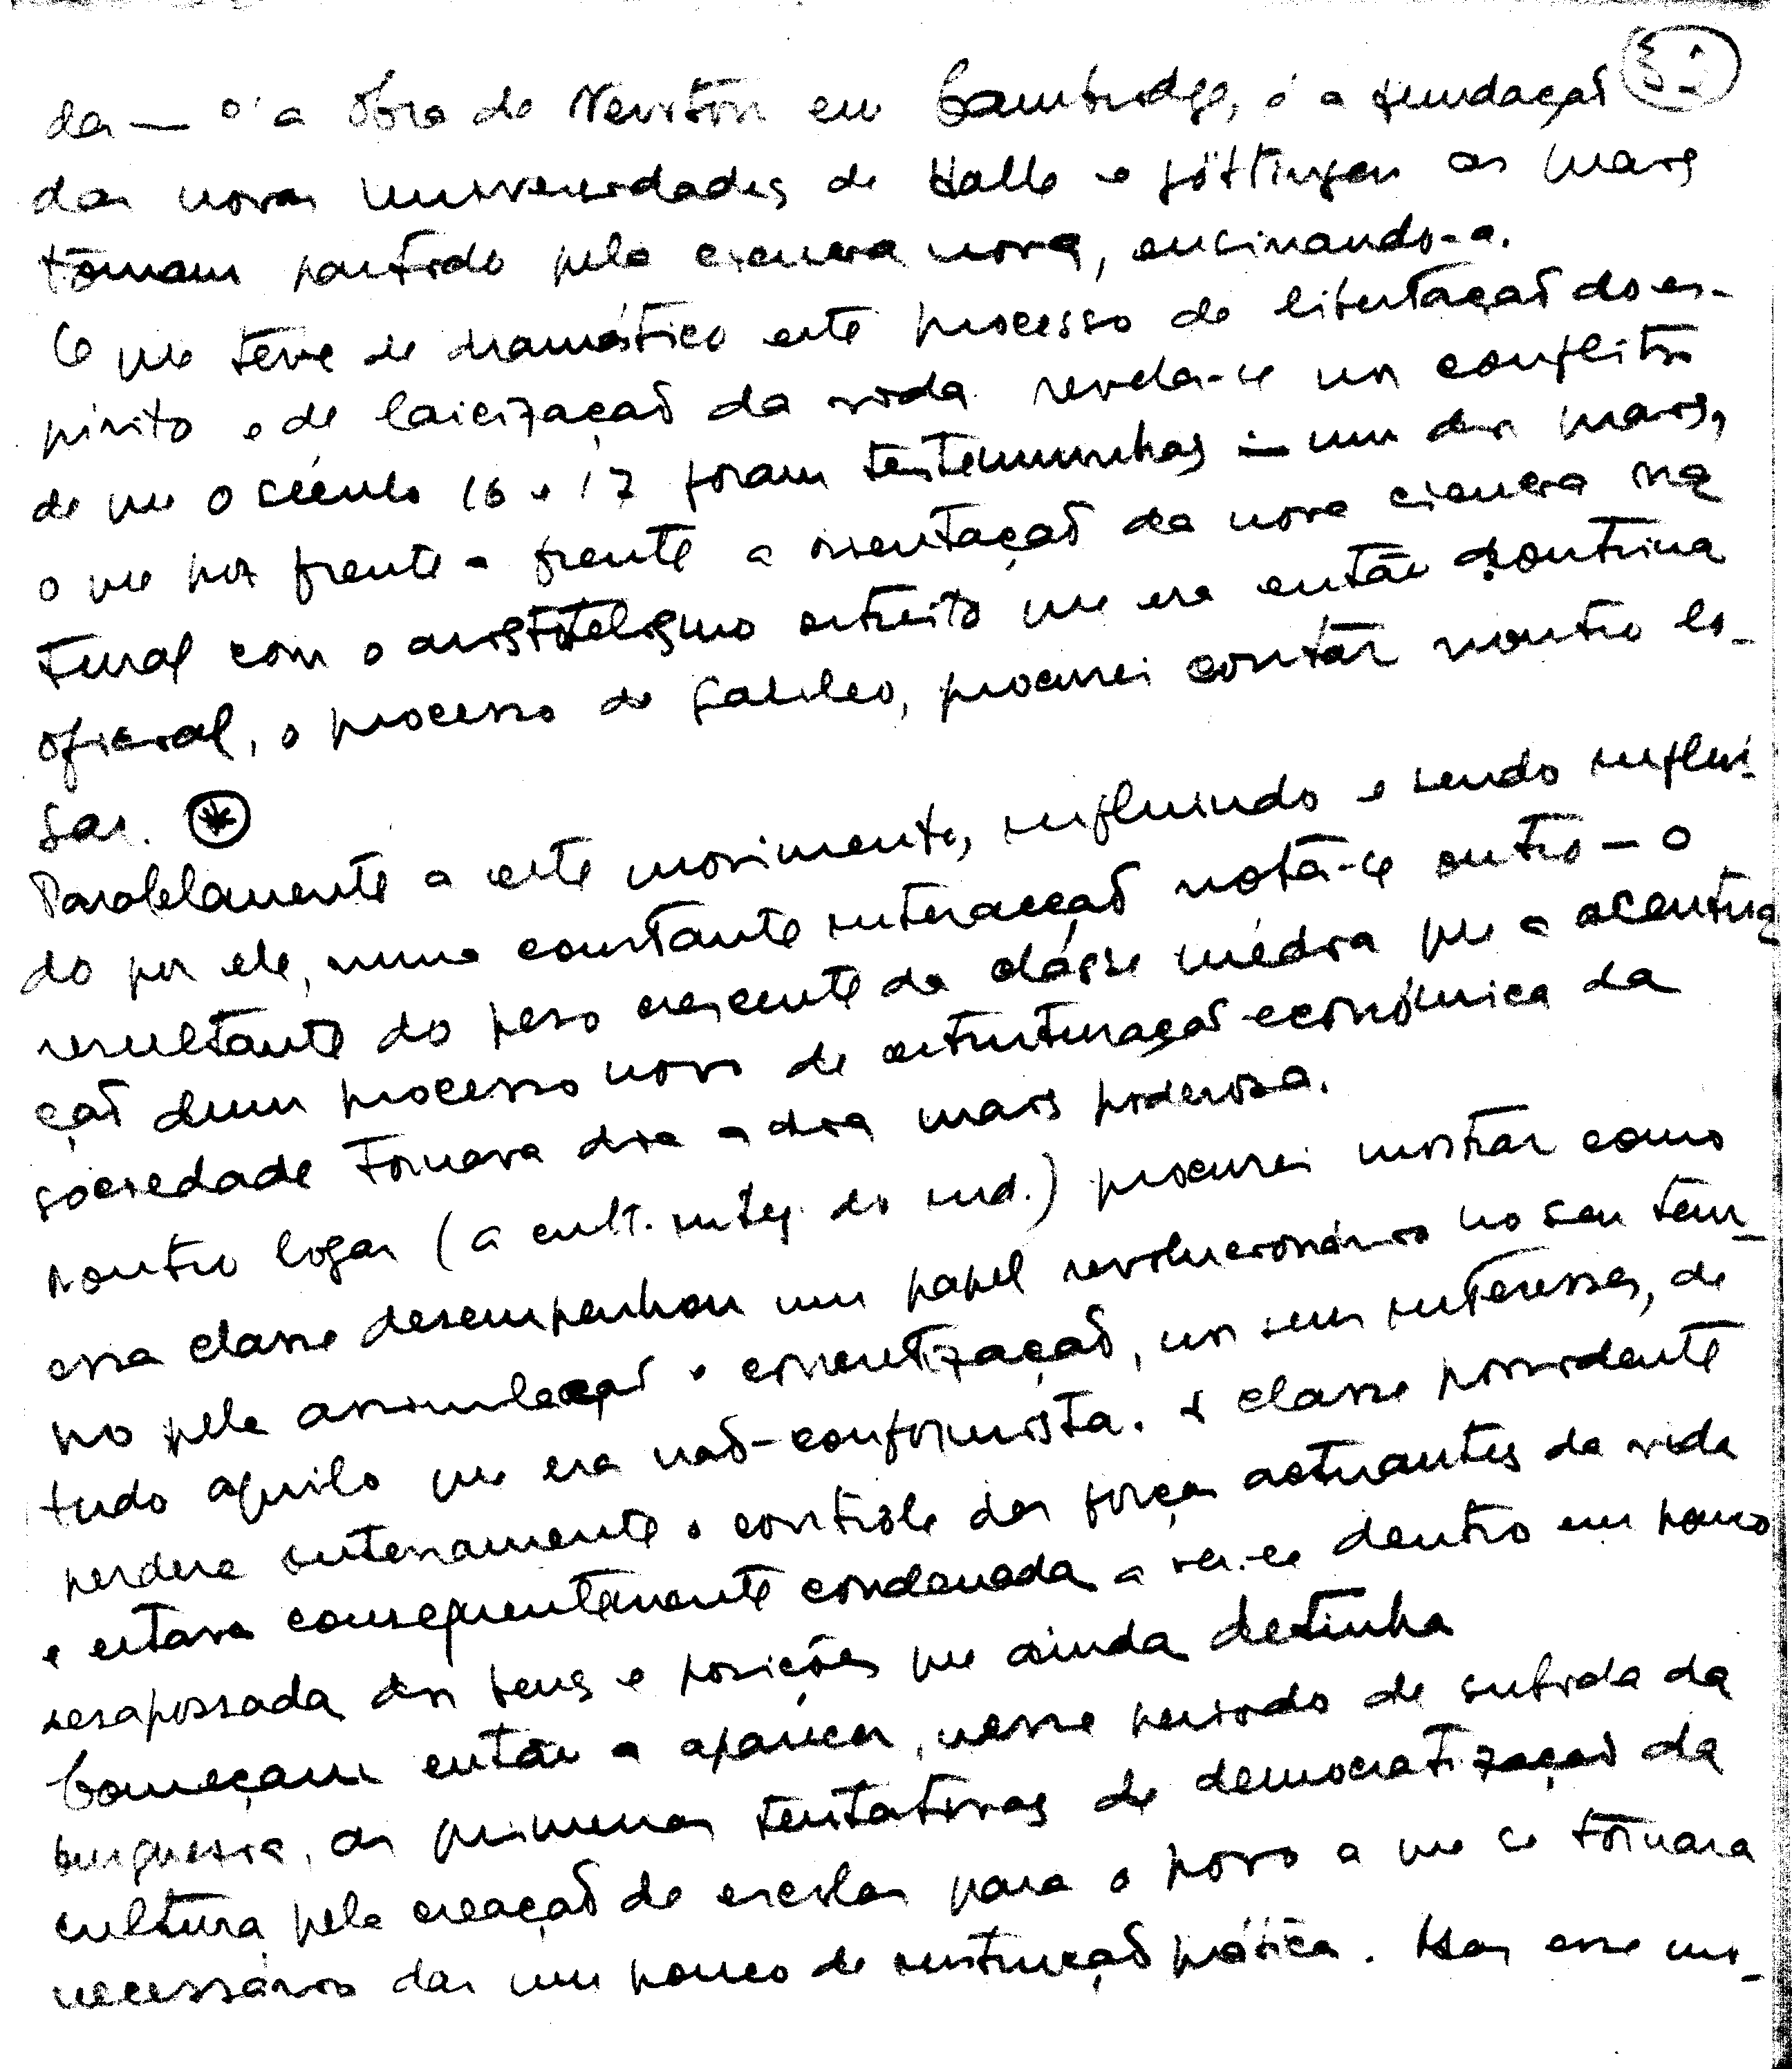 da — é a obra de Newton em Cambridge, é a fundação
das novas universidades de Halle e Göttingen as mais
tomam partido pela ciencia nova, ensinando-a.
O que teve de dramático este processo de libertação do es-
pírito e de laicização da vida revela-se nos conflitos
de que o século 16 e 17 foram testemunhas — um dos mais,
o que pôs frente a frente a orientação da nova ciencia na
tural com o aristotelismo estreito que era então doutrina
oficial, o processo de Galileo, procurei contar noutro lo-
gar.
Paralelamente a este movimento, influindo e sendo influi-
do por ele, numa constante interacção nota-se outro — o
resultante do peso crescente da classe média que a acentua
ção dum processo novo de estruturação económica da
sociedade tornava dia a dia mais poderosa.
Noutro logar (a cult. integ. do ind.) procurei mostrar como
essa classe desempenhou um papel revolucionário no seu tem-
po pela assimilação e concretização, nos seus interesses, de
tudo aquilo que era não-conformista. A classe possidente
perdera inteiramente o contrôle das forças actuantes da vida
e estava consequentemente condenada a ver-se dentro em pouco
desapossada dos bens e posições que ainda detinha
Começam então a aparecer, nesse período de subida da
burguesia, as primeiras tentativas de democratização da
cultura pela creação de escolas para o povo a que se tornara
necessário dar um pouco de instrução prática. Mas esse mo-